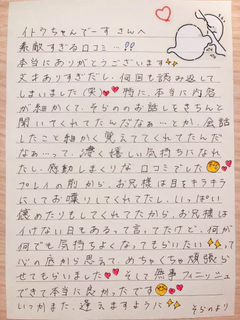 イトウちゃんでーす さんへ
素敵すぎる口コミ…!?
本当にありがとうございます
文才ありすぎだし、何回も読み返して
しまいました(笑) 特に、本当に内容
が細かくて、そらののお話しをきちんと
聞いてくれてたんだなぁ…とか、会話
したこと細かく覚えててくれてたんだ
なぁ…って、凄く嬉しい気持ちになれ
たし、感動しまくりな 口コミでした
プレイの前から、お兄様は目をキラキラに
にして お喋りしてくれてたし、いっぱい
褒めたりもしてくれてたから、お兄様は
イけない日もあるって言ってたけど、何が
何でも気持ちよくなってもらいたい って
心の底から思えて、めちゃくちゃ頑張ら
せてもらいました そして無事フィニッシュ
できて本当に良かったです
いつかまた、逢えますように
そらのより